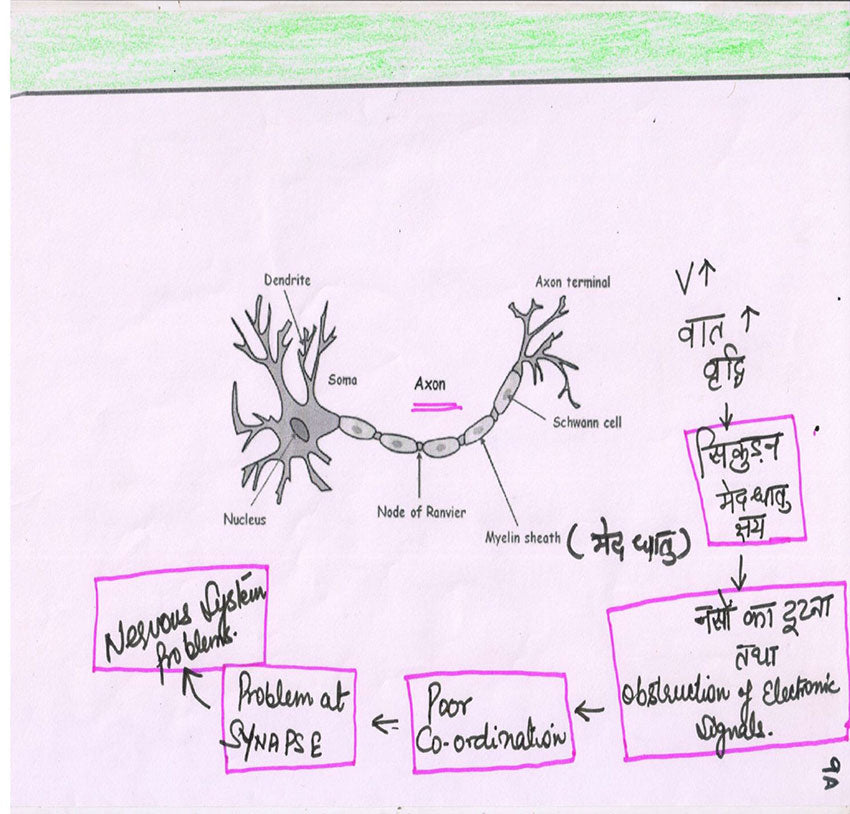 Dendrite
Axon terminal
Soma
Axon
Schwann cell
Nucleus
Node of Ranvier
Myelin sheath (मेद धातु)
V↑
वात ↑
वृद्धि
↓
सिकुड़न
मेद धातु
क्षय
↓
नसों का टूटना
तथा
Obstruction of Electronic
Signals.
←
Poor
Co-ordination
←
Problem at
SYNAPSE
Nervous System
Problems.
9A